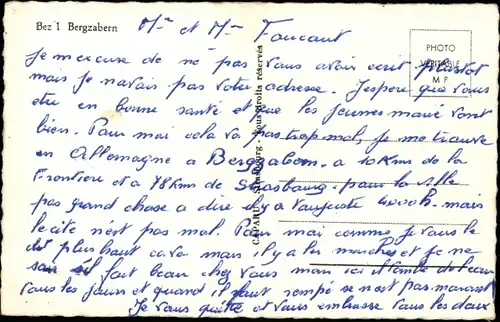 Bez 1 Bergzabern
Mr et Mme Foucaut
PHOTO
VÉRITABLE
M P
Je m'excuse de ne pas vous avoir ecrit plustot
mais je n'avais pas votre adresse. J'espere que vous
etes en bonne santé et que les jeunes marié vont
bien. Pour moi cela va pas trop mal, je me trouve
en Allemagne a Bergzabern. a 10 Kms de la
Frontiere et a 78 Kms de Strasbourg. pour la ville
pas grand chose a dire il y a 4000 h. mais
le cité n'est pas mal. Pour moi comme je vous le
dis plus haut ca va mais il y a les marches et je ne
sais si il fait beau chez vous mais ici il tombe de l'eau
tous les jours et quand il faut rempé se n'est pas marrant
Je vous quitte et vous embrasse tous les deux
CAP - Strasbourg - Tous droits réservés